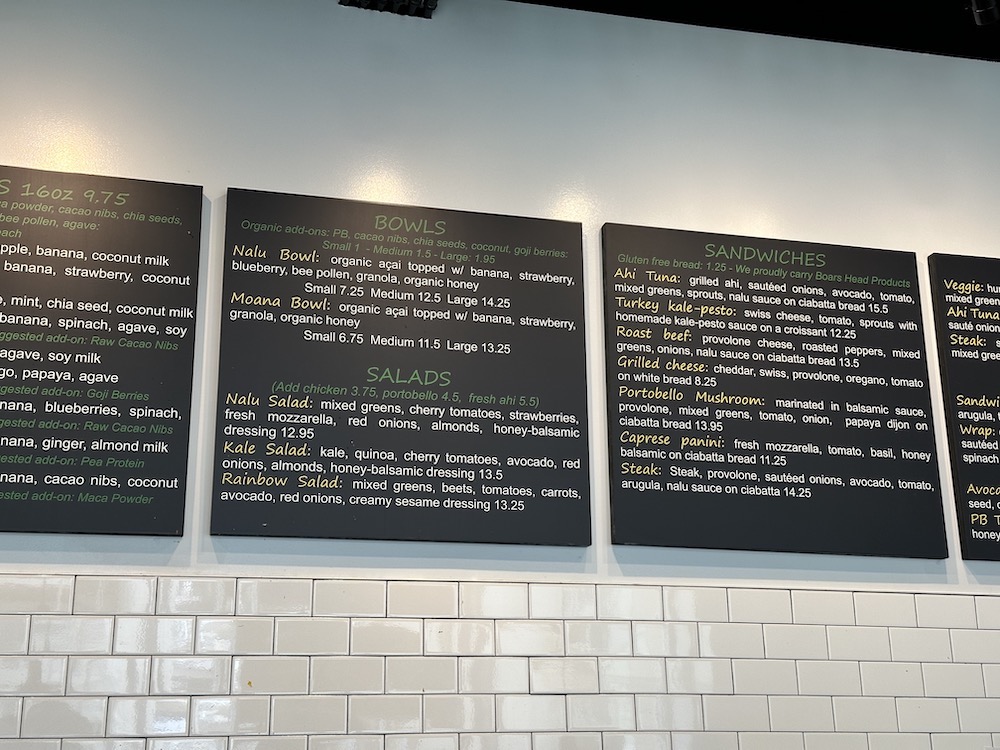 S 16oz 9.75
powder, cacao nibs, chia seeds,
bee pollen, agave:
banana, coconut milk
banana, strawberry, coconut
mint, chia seed, coconut milk
banana, spinach, agave, soy
add-on: Raw Cacao Nibs
agave, soy milk
papaya, agave
add-on: Goji Berries
blueberries, spinach,
add-on: Raw Cacao Nibs
ginger, almond milk
add-on: Pea Protein
cacao nibs, coconut
add-on: Maca Powder
BOWLS
Organic add-ons: PB, cacao nibs, chia seeds, coconut, goji berries:
Small 1 - Medium 1.5 - Large: 1.95
Nalu Bowl: organic açai topped w/ banana, strawberry,
blueberry, bee pollen, granola, organic honey
Small 7.25 Medium 12.5 Large 14.25
Moana Bowl: organic açai topped w/ banana, strawberry,
granola, organic honey
Small 6.75 Medium 11.5 Large 13.25
SALADS
(Add chicken 3.75, portobello 4.5, fresh ahi 5.5)
Nalu Salad: mixed greens, cherry tomatoes, strawberries,
fresh mozzarella, red onions, almonds, honey-balsamic
dressing 12.95
Kale Salad: kale, quinoa, cherry tomatoes, avocado, red
onions, almonds, honey-balsamic dressing 13.5
Rainbow Salad: mixed greens, beets, tomatoes, carrots,
avocado, red onions, creamy sesame dressing 13.25
SANDWICHES
Gluten free bread: 1.25 - We proudly carry Boars Head Products
Ahi Tuna: grilled ahi, sautéed onions, avocado, tomato,
mixed greens, sprouts, nalu sauce on ciabatta bread 15.5
Turkey kale-pesto: swiss cheese, tomato, sprouts with
homemade kale-pesto sauce on a croissant 12.25
Roast beef: provolone cheese, roasted peppers, mixed
greens, onions, nalu sauce on ciabatta bread 13.5
Grilled cheese: cheddar, swiss, provolone, oregano, tomato
on white bread 8.25
Portobello Mushroom: marinated in balsamic sauce,
provolone, mixed greens, tomato, onion, papaya dijon on
ciabatta bread 13.95
Caprese panini: fresh mozzarella, tomato, basil, honey
balsamic on ciabatta bread 11.25
Steak: Steak, provolone, sautéed onions, avocado, tomato,
arugula, nalu sauce on ciabatta 14.25
Veggie:
mixed
Ahi Tuna
sauté
Steak:
mixed
arugula,
Wrap:
sautéed
spinach
seed,
PB
honey